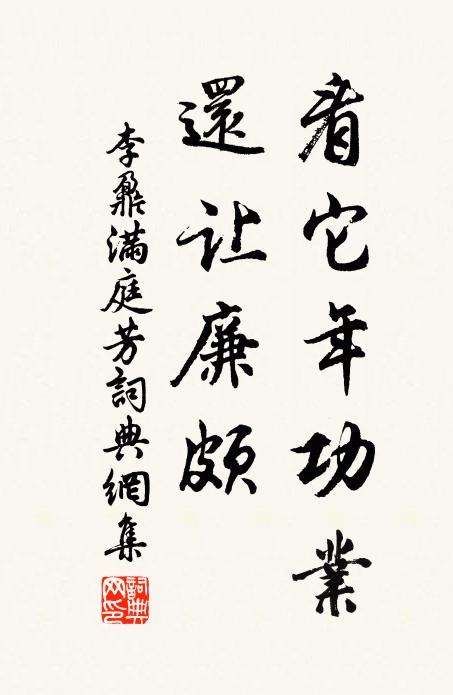 看它年功業
還让廉頗
李鼐滿庭芳詞典網集
詞典网印